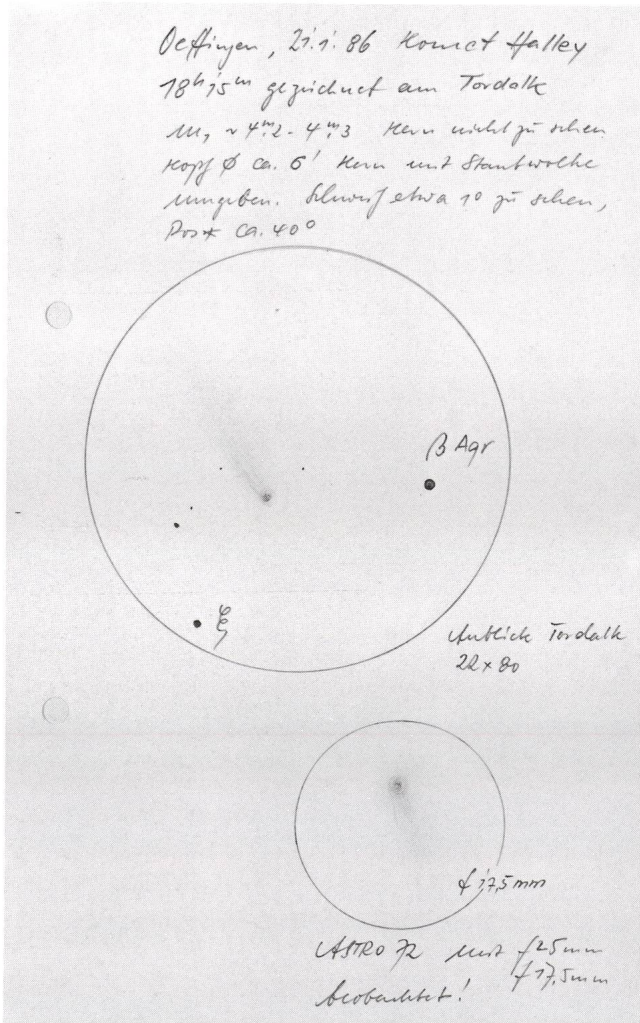 Oeffingen, 21.1.86 Komet Halley
18ʰ15ᵐ gezeichnet am Tordalk
m₁ ~ 4ᵐ.2 - 4ᵐ.3 Kern nicht zu sehen
Kopf Ø ca. 6' Kern mit Staubwolke
umgeben. Schweif etwa 1° zu sehen,
Pos ca. 40°
β Aqr
ξ
Anblick Tordalk
22 x 80
f 17,5mm
ASTRO 72 mit f25mm
f17,5mm
beobachtet!